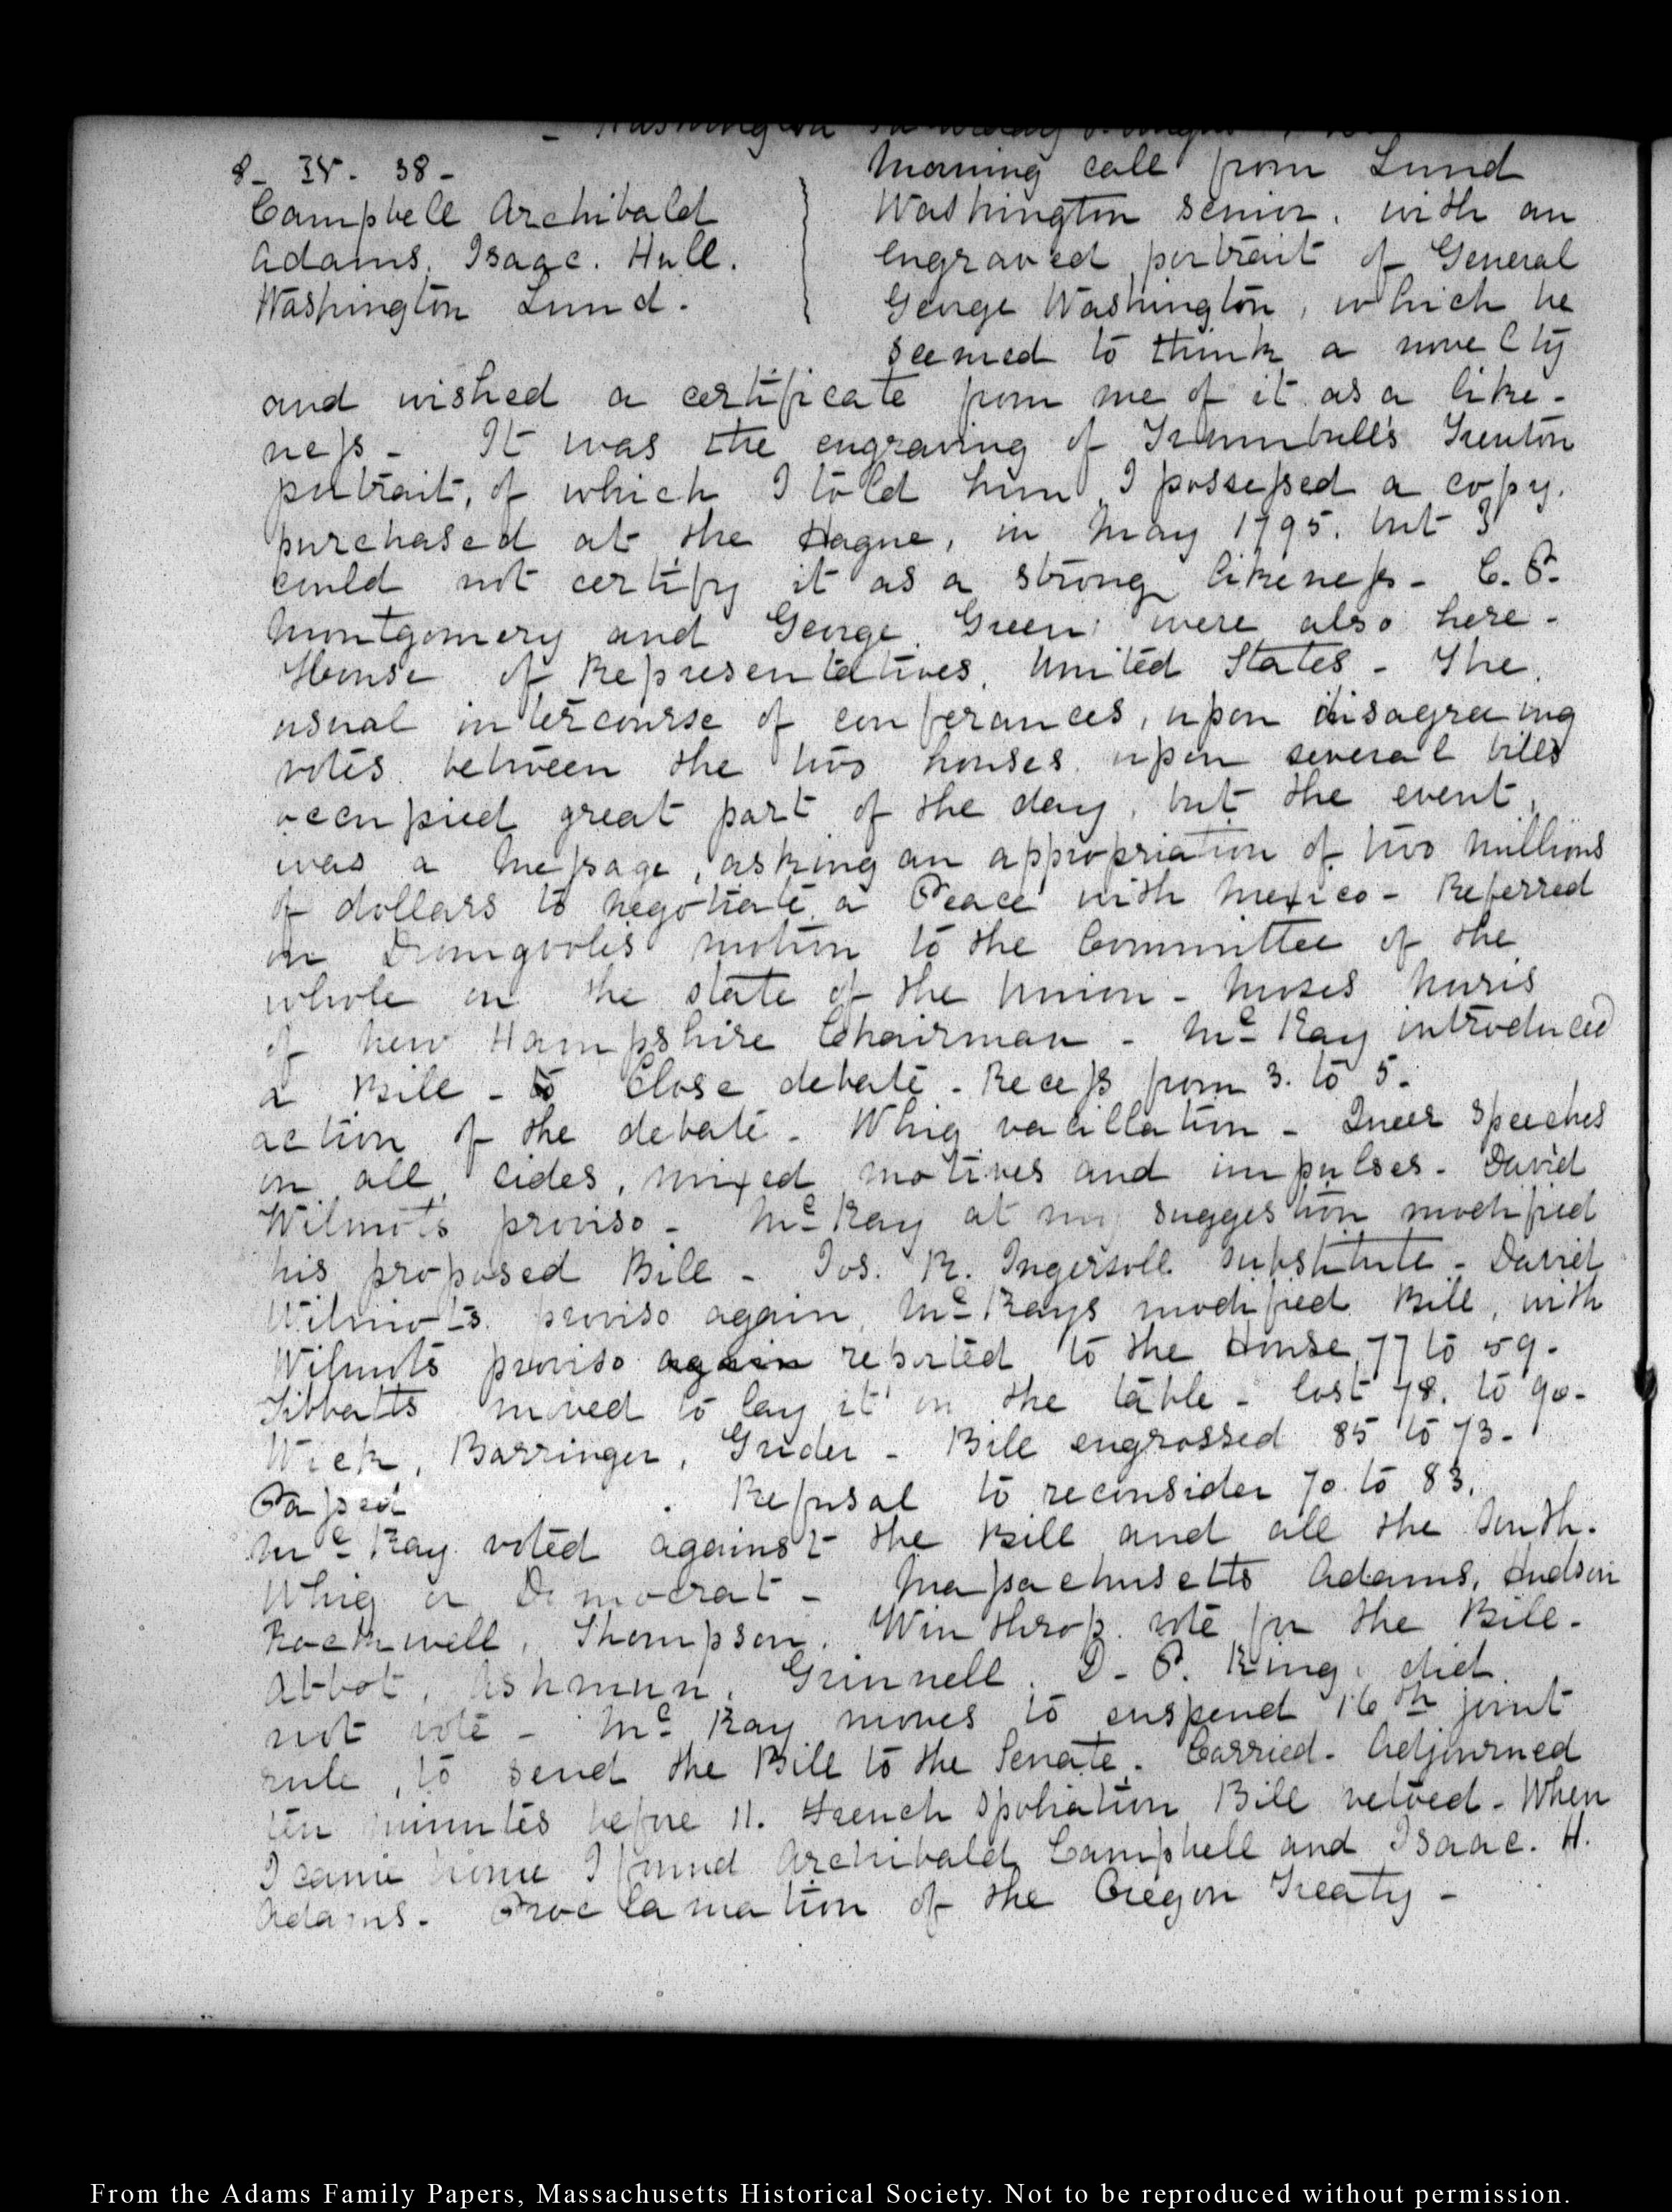 Washington Saturday
8- IV. 38-
Campbell Archibald
Adams. Isaac. Hull.
Washington Lund.
Morning call from Lund
Washington senior. with an
engraved portrait of General
George Washington, which he
seemed to think a novelty
and wished a certificate from me of it as a like-
ness - It was the engraving of Trumbull's Trenton
portrait, of which I told him I possessed a copy.
purchased at the Hague, in May 1795. but I
could not certify it as a strong likeness - C. P.
Montgomery and George Green were also here -
House of Representatives. United States - The
usual intercourse of conferances, upon disagreeing
votes between the two houses upon several bills
occupied great part of the day, but the event,
was a message, asking an appropriation of two millions
of dollars to negotiate a Peace with Mexico - Referred
on Dromgooles motion to the Committee of the
whole on the state of the Union - Moses Norris
of New Hampshire Chairman - Mc Kay introduced
a Bill - to close debate - Recess from 3. to 5.
action of the debate - Whig vacillation - Queer speeches
on all sides, mixed motives and impulses - David
Wilmots proviso - Mc Kay at my suggestion modified
his proposed Bill - Jos. R. Ingersoll substitute - David
Wilmots proviso again, Mc Kays modified Bill, with
Wilmots proviso again reported to the House, 77 to 59.
Tibbatts moved to lay it on the table - lost 78. to 90-
Wick, Barringer, Grider - Bill engrossed 85 to 73-
Passed . Refusal to reconsider 70 to 83.
Mc Kay voted against the Bill and all the South.
Whig or Democrat - Massachusetts Adams, Hudson
Rockwell, Thompson. Winthrop vote for the Bill -
Abbot, Ashmun, Grinnell. D - P. King. did
not vote - Mc Kay moves to suspend 16th joint
rule, to send the Bill to the Senate - Carried - Adjourned
ten minutes before 11. French spoliation Bill vetoed - When
I came home I found Archibald Campbell and Isaac. H.
Adams - Proclamation of the Oregon Treaty -
From the Adams Family Papers, Massachusetts Historical Society. Not to be reproduced without permission.